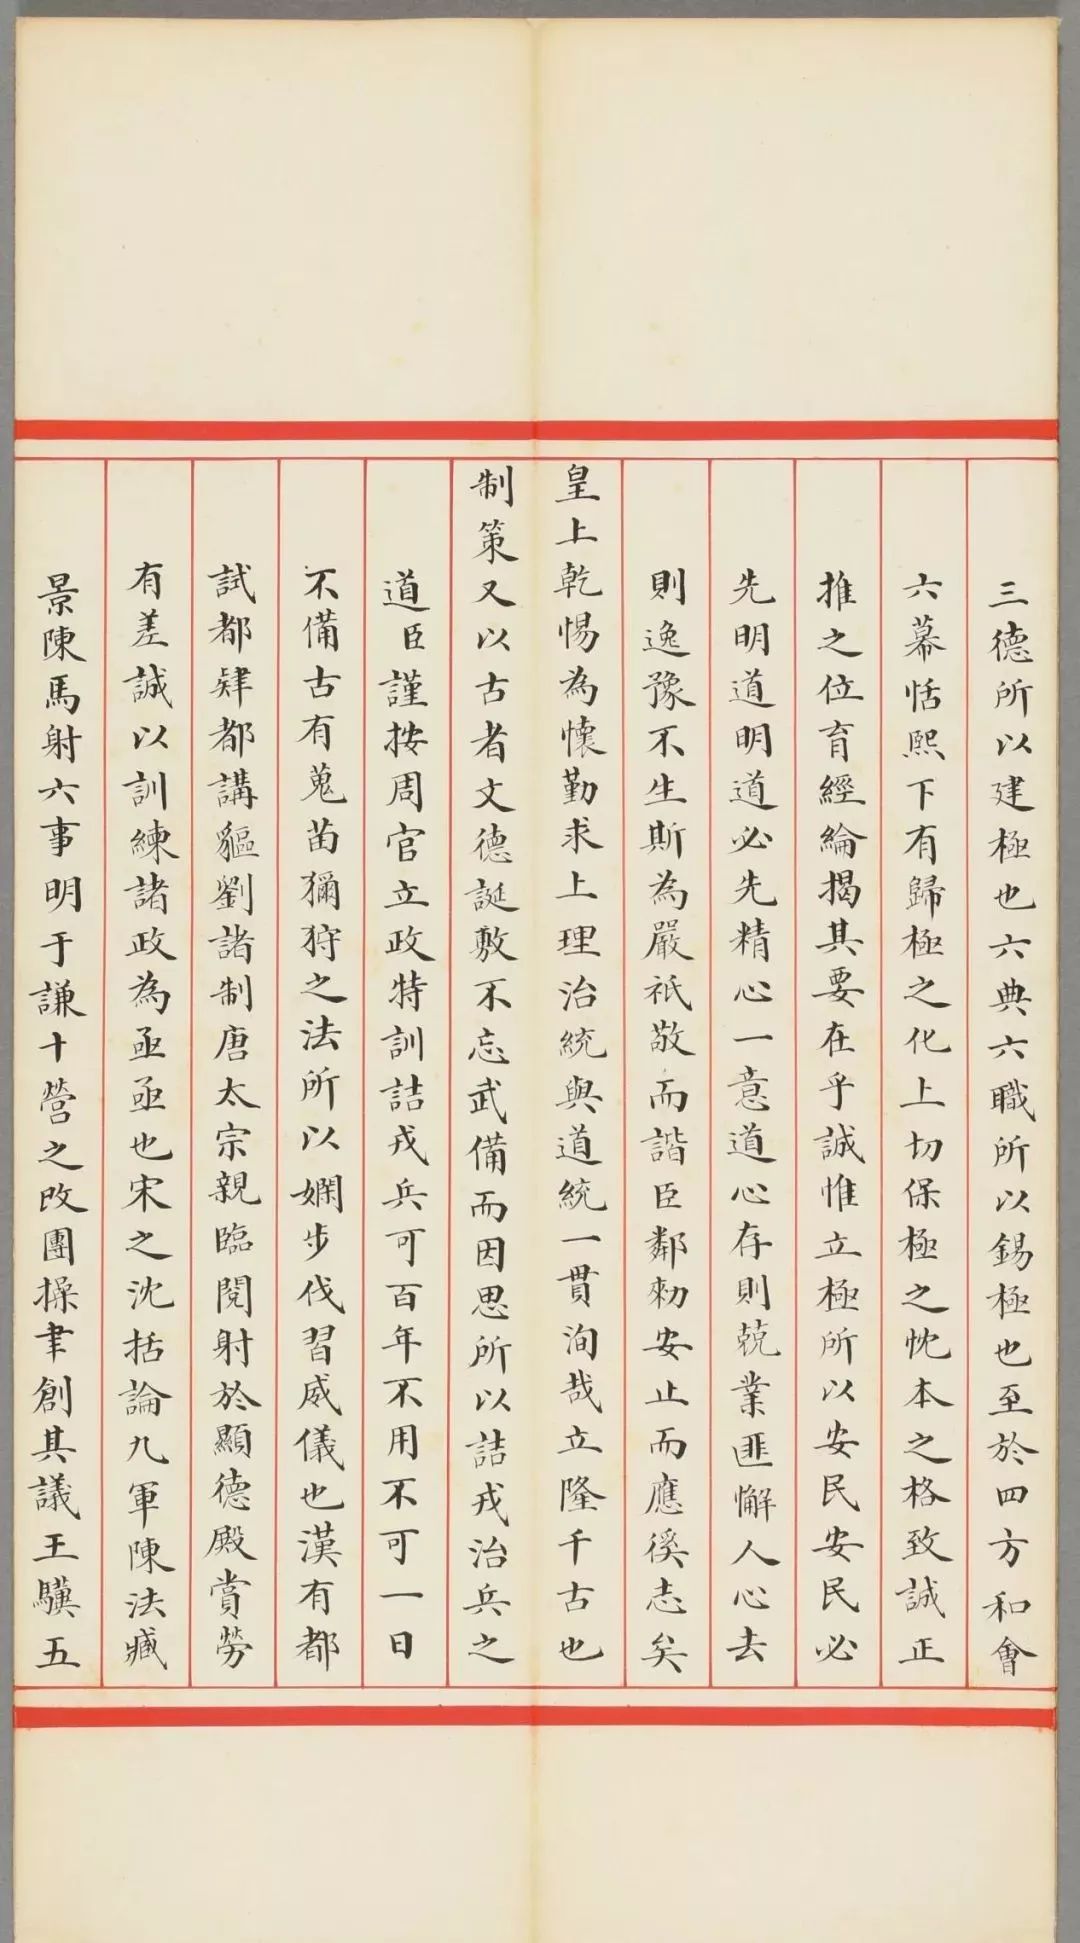 三德所以建極也六典六職所以錫極也至於四方和會
六幕恬熙下有歸極之化上切保極之忱本之格致誠正
推之位育經綸揭其要在乎誠惟立極所以安民安民必
先明道明道必先精心一意道心存則兢業匪懈人心去
則逸豫不生斯為嚴祇敬而諧臣鄰勑安止而應徯志矣
皇上乾惕為懷勤求上理治統與道統一貫洵哉立隆千古也
制策又以古者文德誕敷不忘武備而因思所以詰戎治兵之
道臣謹按周官立政特訓詰戎兵可百年不用不可一日
不備古有蒐苗獮狩之法所以嫻步伐習威儀也漢有都
試都肄都講貙劉諸制唐太宗親臨閱射於顯德殿賞勞
有差誠以訓練諸政為亟亟也宋之沈括論九軍陳法臧
景陳馬射六事明于謙十營之改團操聿創其議王驥五